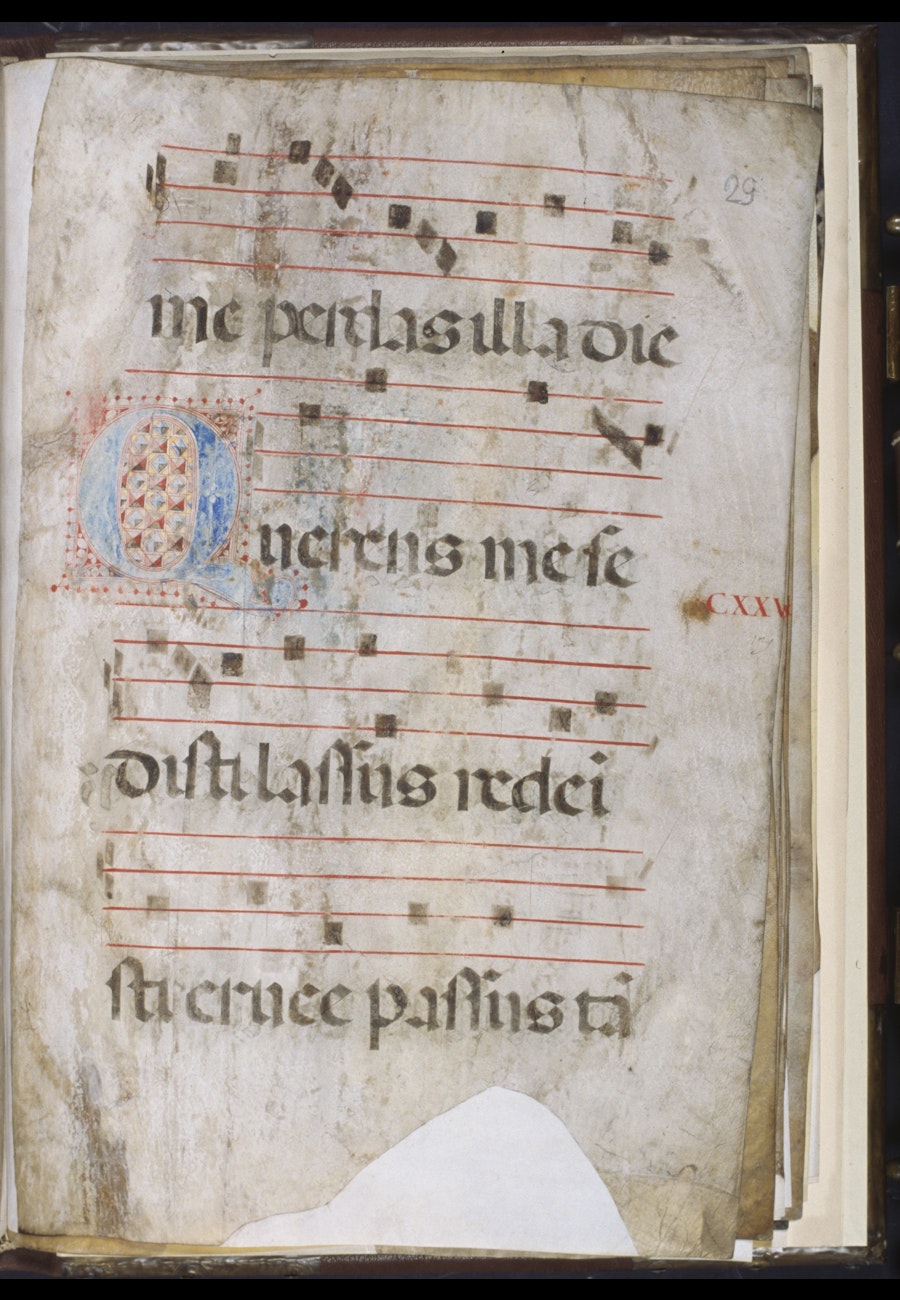 29
me perdas illa die
Querens me se
CXXV
disti lassus redei
sti crucē passus tā